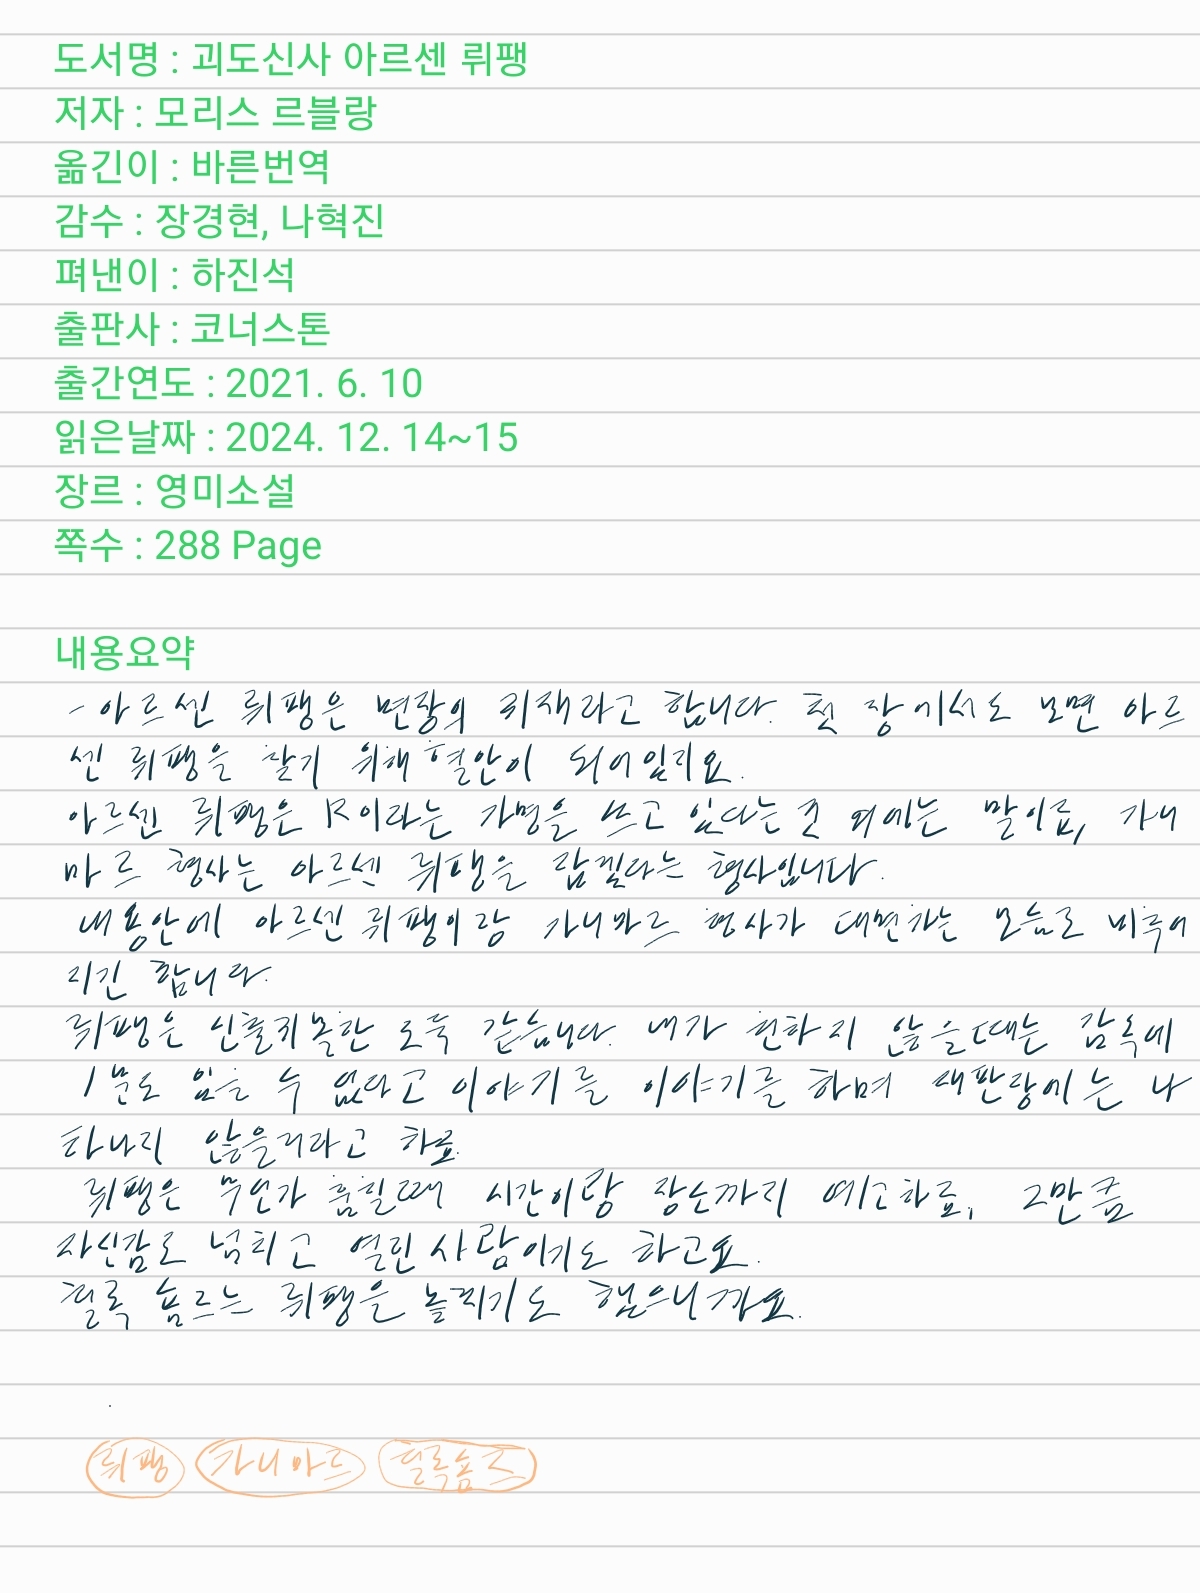 도서명 : 괴도신사 아르센 뤼팽
저자 : 모리스 르블랑
옮긴이 : 바른번역
감수 : 장경현, 나혁진
펴낸이 : 하진석
출판사 : 코너스톤
출간연도 : 2021. 6. 10
읽은날짜 : 2024. 12. 14~15
장르 : 영미소설
쪽수 : 288 Page
내용요약
- 아르센 뤼팽은 변장의 귀재라고 합니다. 첫 장에서도 보면 아르
센 뤼팽을 찾기 위해 혈안이 되어있지요.
아르센 뤼팽은 R이라는 가명을 쓰고 있다는 것 외에는 말이죠, 가니
마르 형사는 아르센 뤼팽을 형사입니다.
내용안에 아르센 뤼팽이랑 가니마르 형사가 대면하는 모습로
합니다.
뤼팽은 신출귀몰한 도둑 같습니다. 내가 원하지 않을때는 감옥에
1분도 있을 수 없다고 이야기를 이야기를 하며 재판장에는 나
타나지 않을거라고 하죠.
뤼팽은 무언가 훔칠때 시간이랑 장소까지 예고하죠, 그만큼
자신감도 넘치고 열린 사람이기도 하고요.
헐록 숌즈는 뤼팽을 놓치기도 했으니까요.
뤼팽 가니마르 헐록숌즈